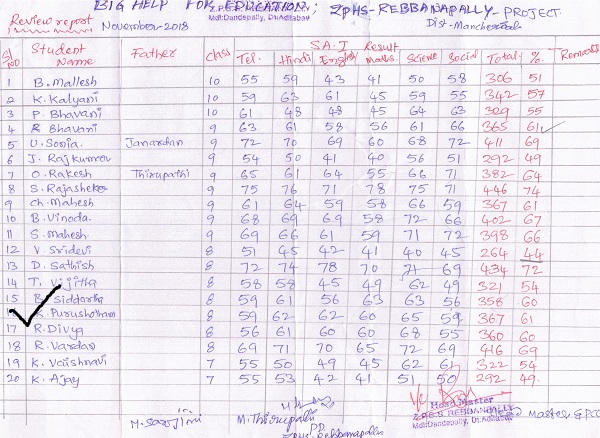 BIG HELP FOR EDUCATION; ZPHS-REBBANAPALLY-PROJECT
Review report November-2018 Mdl:Dandepally, Dt.Adilabad Dist-Mancherial
SA-I Result
Sl NO Student Name Father Class Tel. Hindi English Maths Science Social Total % Remarks
1 B. Mallesh 10 55 59 43 41 50 58 306 51
2 K. Kalyani 10 59 63 61 45 59 55 342 57
3 P. Bhavani 10 61 48 48 45 64 63 329 55
4 R Bhavani 9 63 61 58 56 61 66 365 61
5 U. Sonia. Janardan 9 72 70 69 60 68 72 411 69
6 J. Rajkumar 9 54 50 41 40 56 51 292 49
7 O. Rakesh Thirupathi 9 65 61 64 55 66 71 382 64
8 S. Rajasheker 9 75 76 71 78 75 71 446 74
9 Ch. Mahesh 9 61 64 59 58 66 59 367 61
10 B. Vinoda. 9 68 69 69 58 72 66 402 67
11 S. Mahesh 9 69 66 61 59 71 72 398 66
12 V. Sridevi 8 51 45 42 41 40 45 264 44
13 D. Sathish 8 72 74 78 70 71 69 434 72
14 T. Vijitha 8 58 58 45 49 62 49 321 54
15 B. Siddartha 8 59 61 56 63 63 56 358 60
Purushotham 8 59 62 62 60 65 59 367 61
17 R. Divya 8 56 61 60 60 68 55 360 60
18 R. Vardan 8 69 71 70 65 72 69 416 69
19 K. Vaishnavi 7 55 50 49 45 62 61 322 54
20 K. Ajay 7 55 53 42 41 51 50 292 49
M. Sarojini M. Thirupathi Head Master
Z.P.H.S. REBBANAPALLY
Mdl:Dandepally, Dt.Adilabad